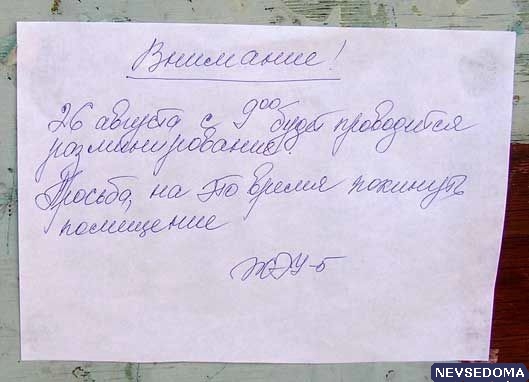 Внимание!
26 августа с 9⁰⁰ будет проводится
разминирование!
Просьба, на то время покинуть
помещение
ЖЭУ-5
NEVSEDOMA